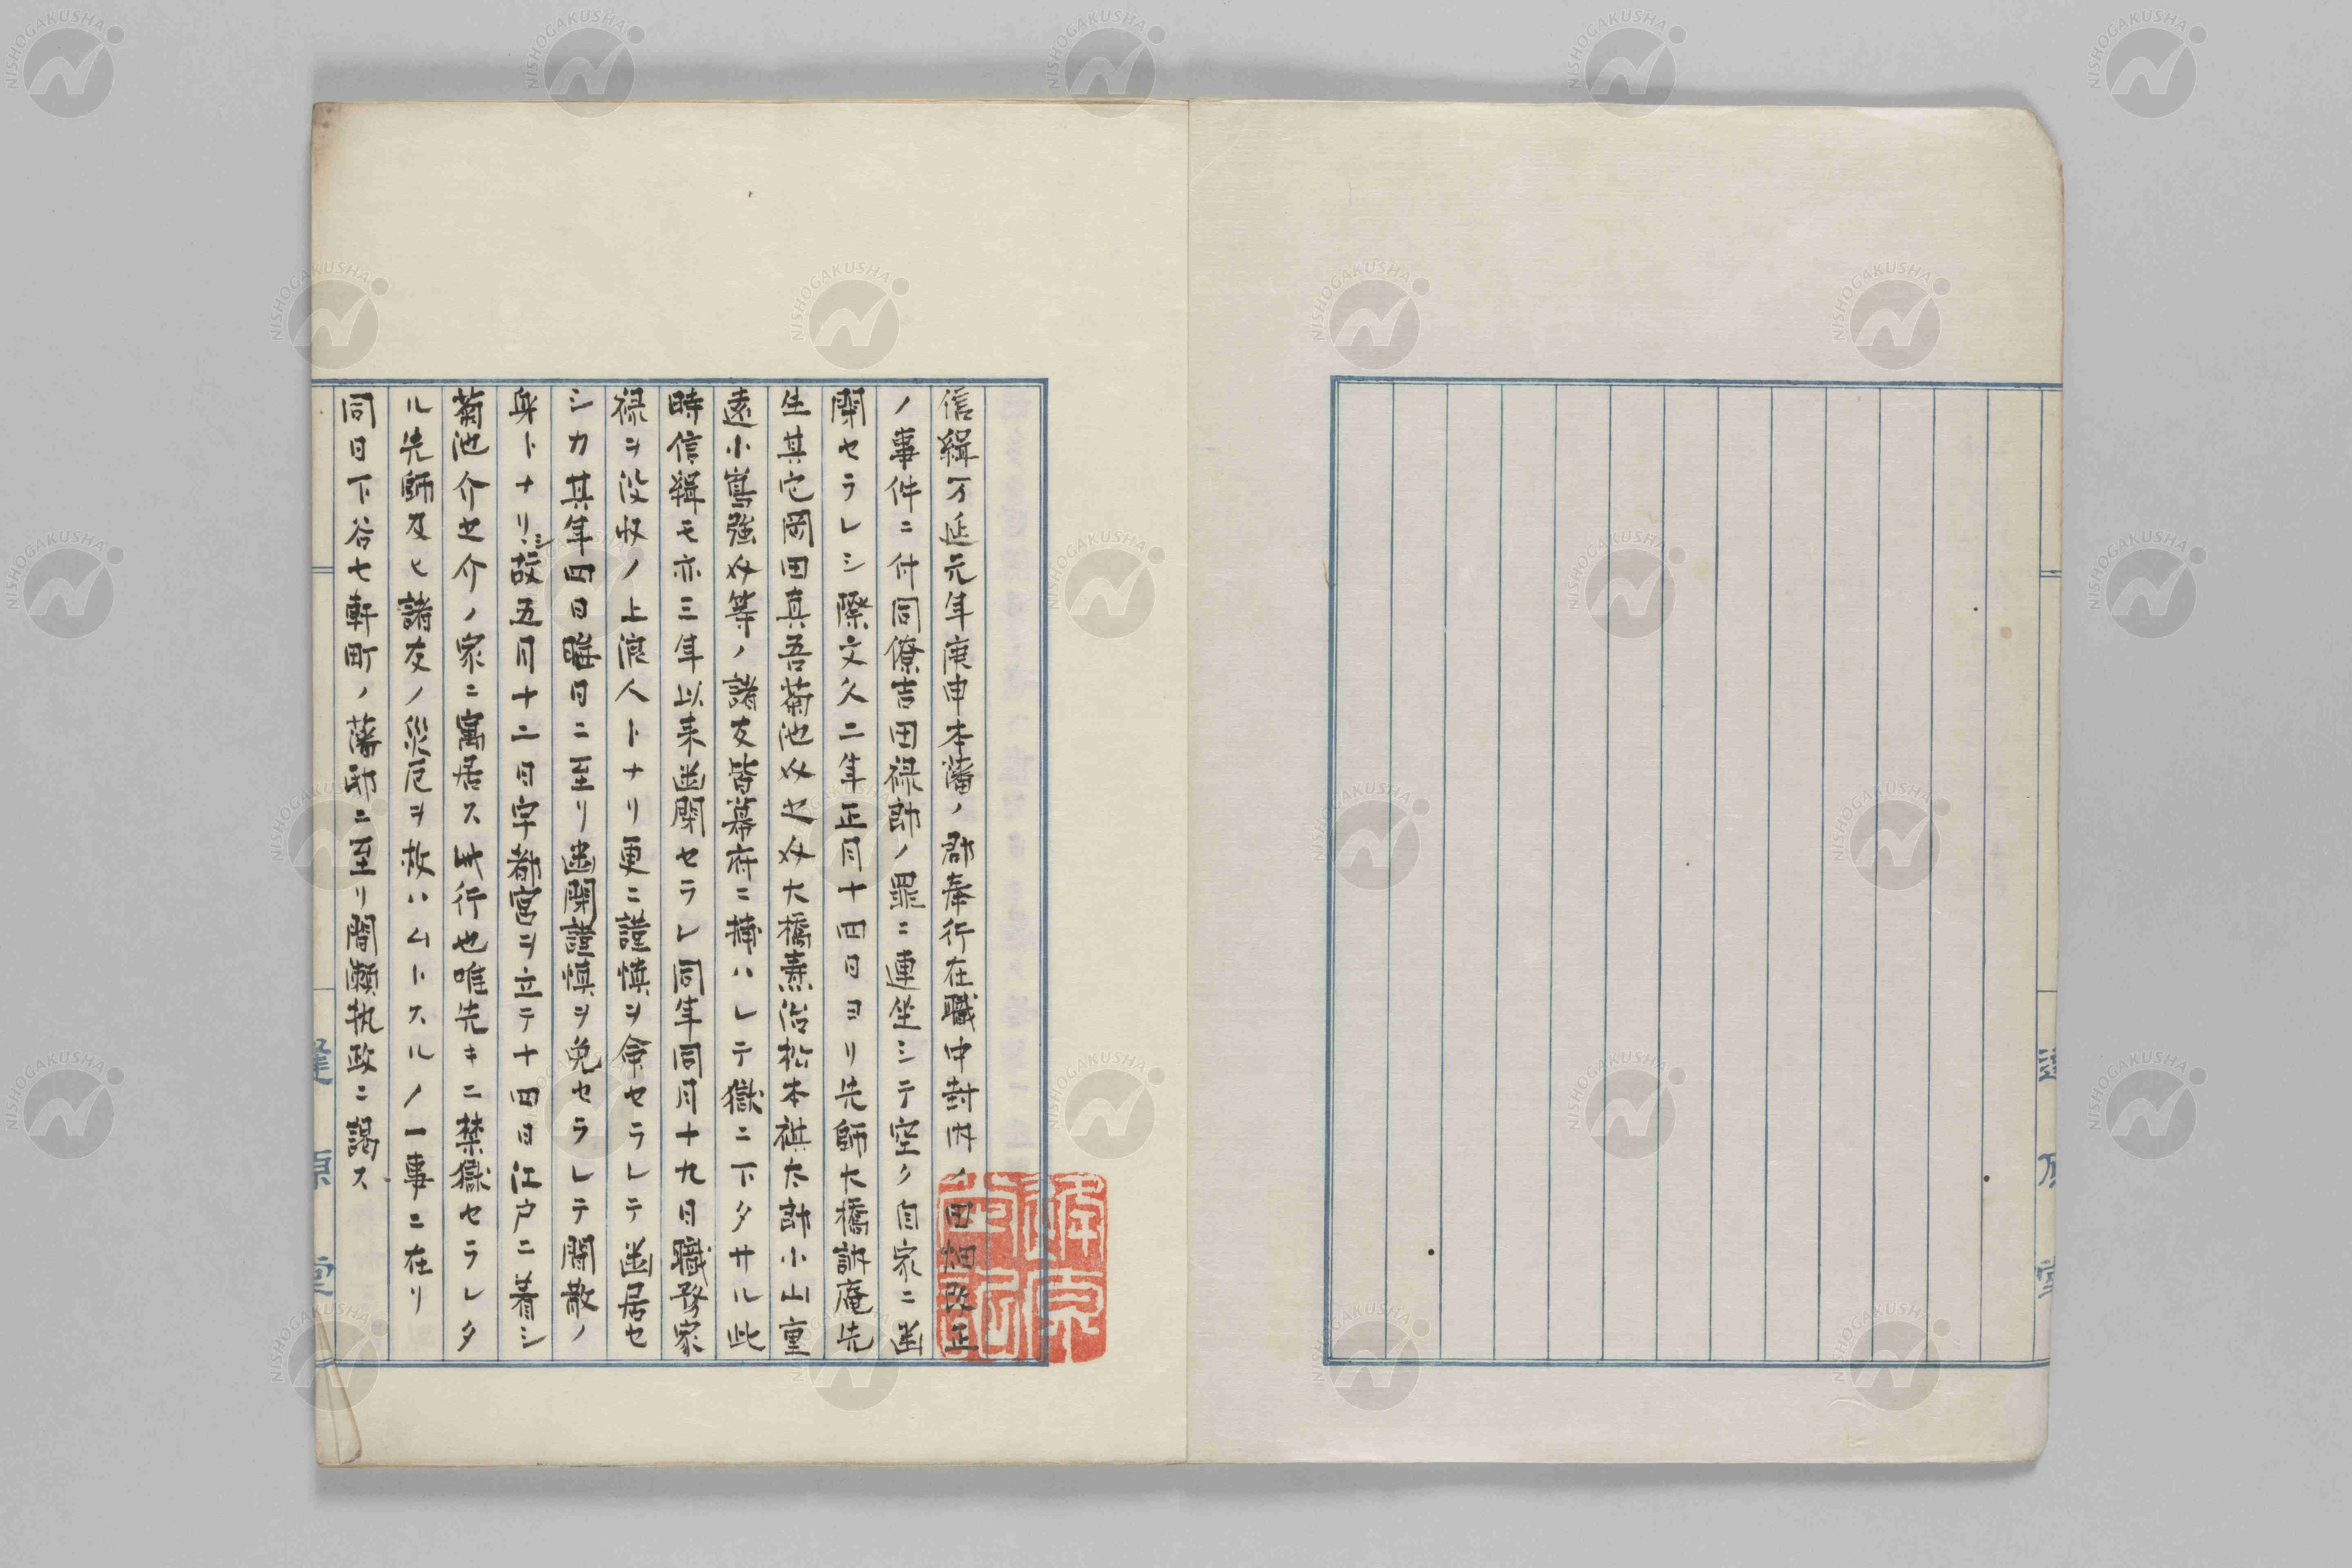 信緝万延元年庚申本藩ノ郡奉行在職中封内ノ田畑改正
ノ事件ニ付同僚吉田禄郎ノ罪ニ連坐シテ空ク自家ニ幽
閉セラレシ際文久二年正月十四日ヨリ先師大橋訥庵先
生其它岡田真吾菊池
大橋燾治松本祺太郎小山重
遠小嶌強
等ノ諸友皆幕府ニ搆ハレテ獄ニ下タサル此
時信緝モ亦三年以来幽閉セラレ同年同月十九日職務家
禄ヲ没収ノ上浪人トナリ更ニ謹慎ヲ命セラレテ幽居セ
シカ其年四月晦日ニ至リ幽閉謹慎ヲ免セラレテ閒散ノ
身トナリシ故五月十二日宇都宮ヲ立テ十四日江戸ニ着シ
菊池介之介ノ家ニ寓居ス此行也唯先キニ禁獄セラレタ
ル先師及ヒ諸友ノ災厄ヲ救ハムトスルノ一事ニ在リ
同日下谷七軒町ノ藩邸ニ至リ間瀬執政ニ謁ス
逢原堂
NISHOGAKUSHA